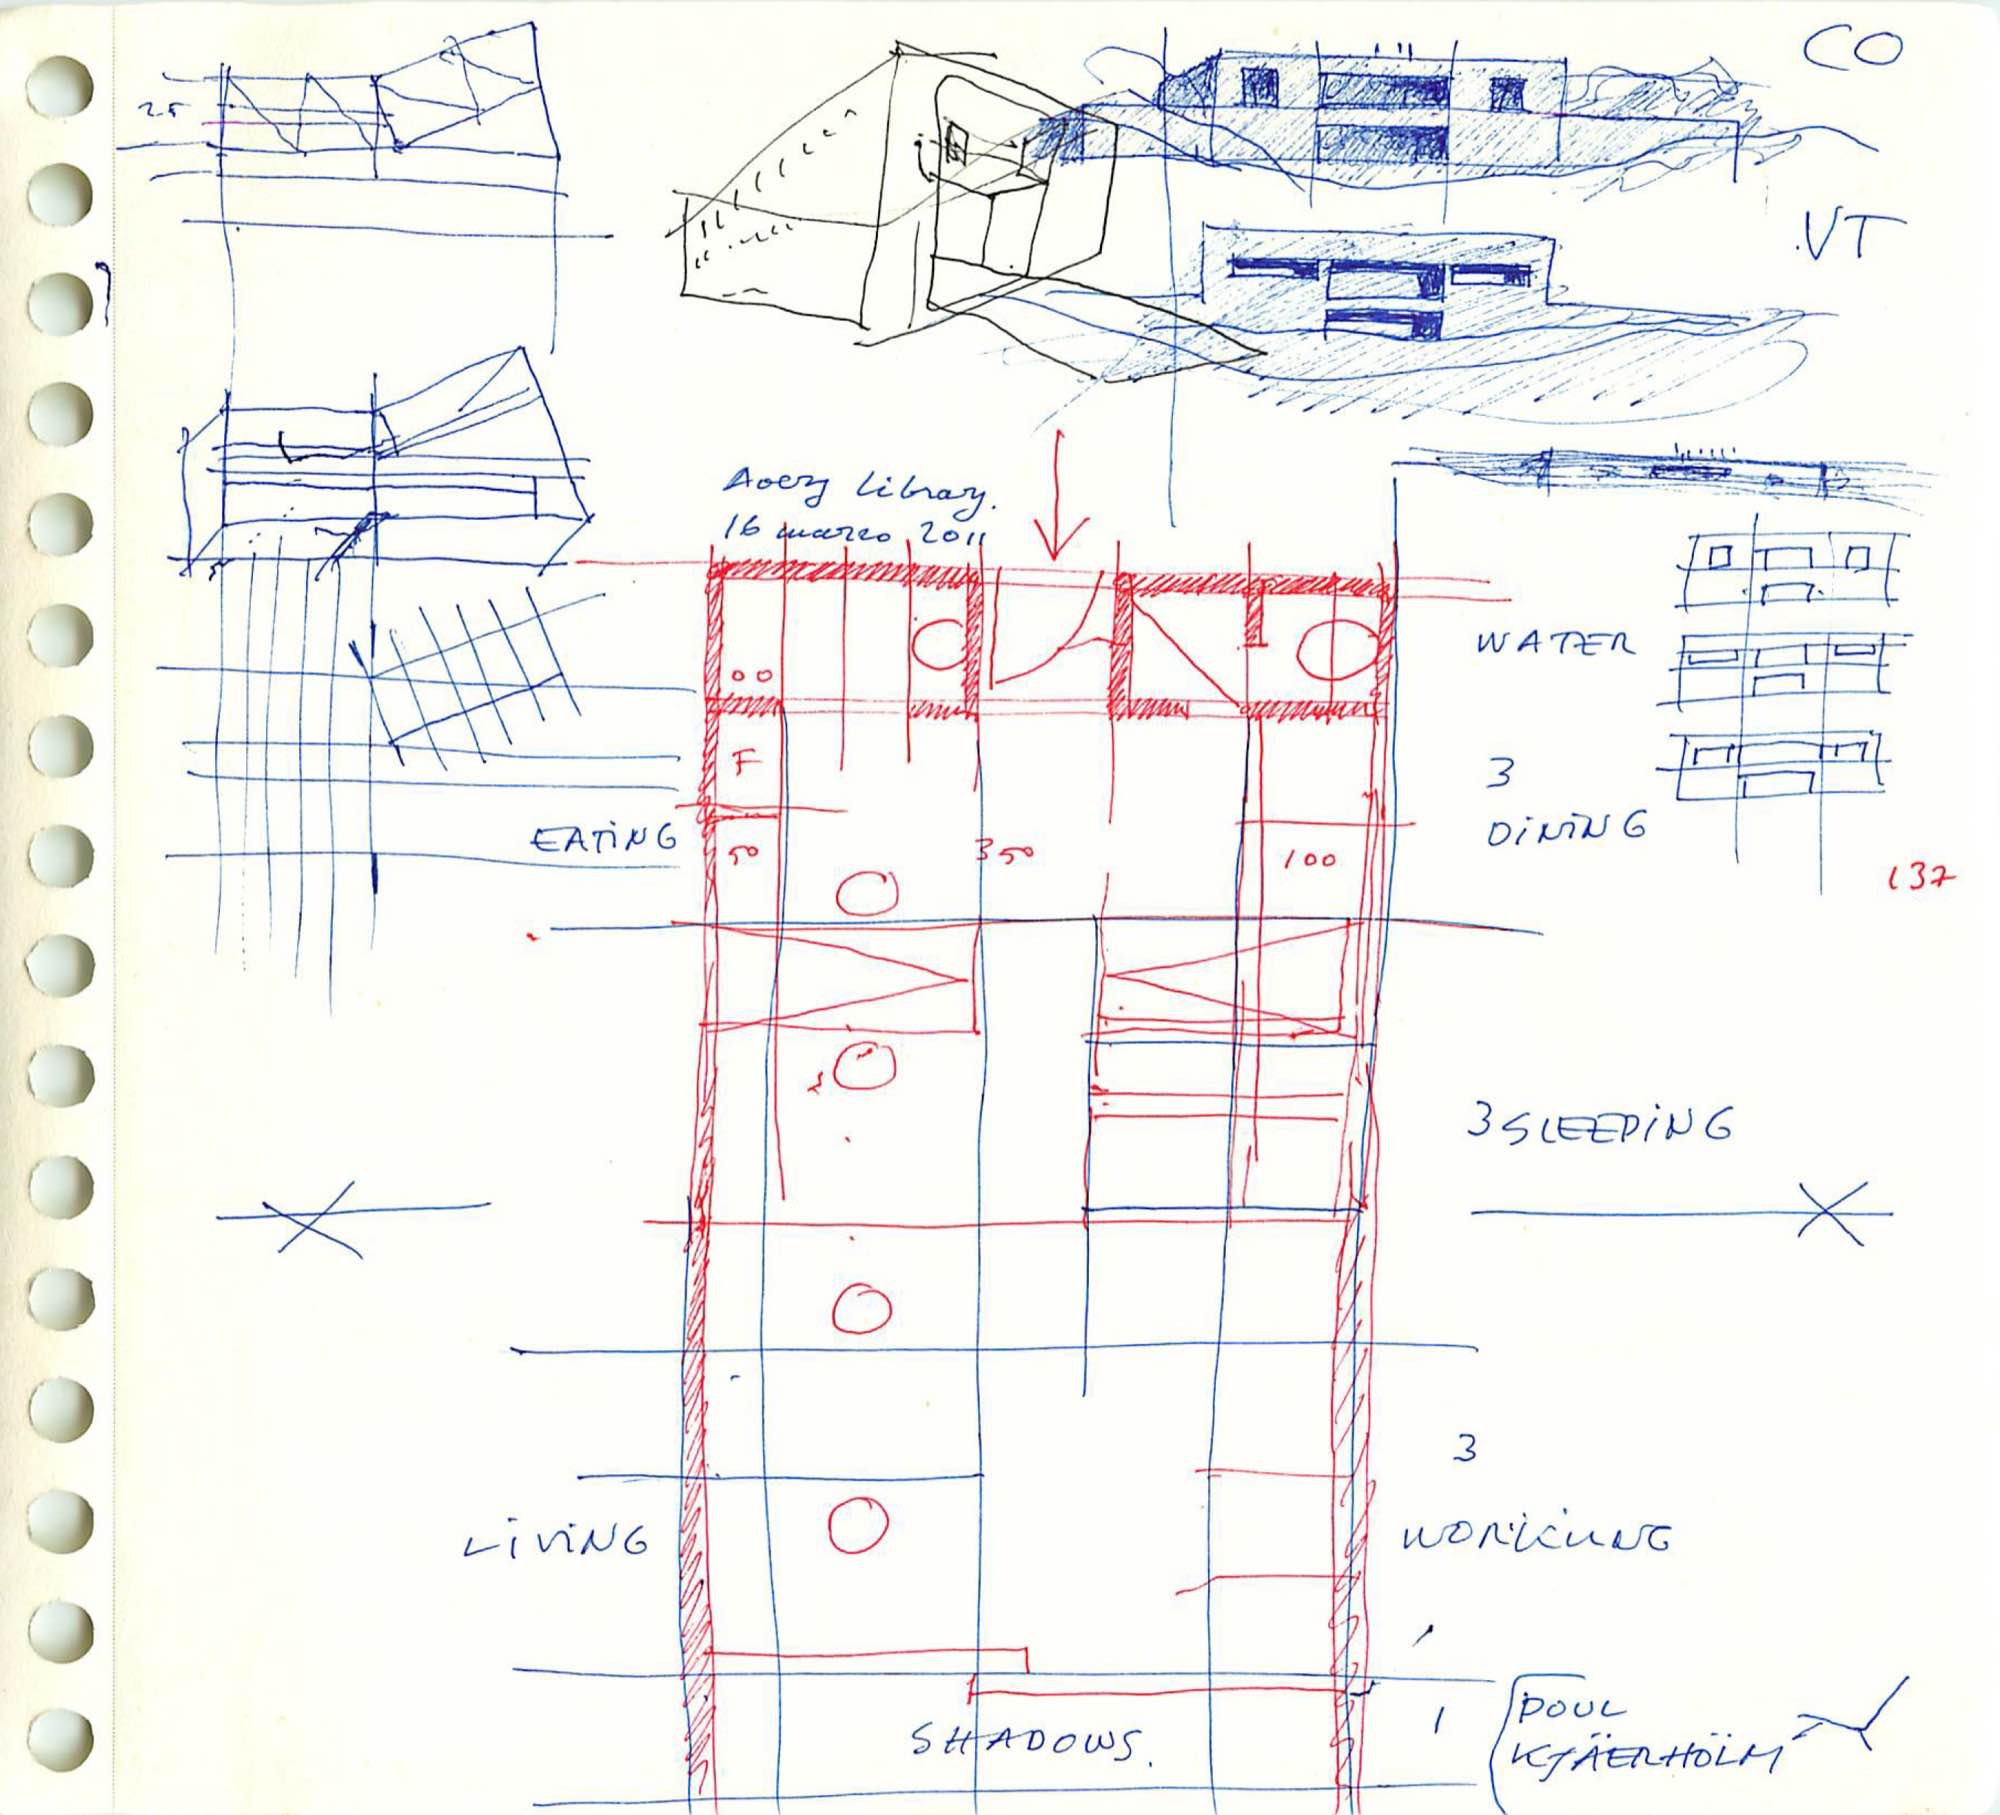 CO
25
VT
Avery Library.
16 marzo 2011
WATER
F
3
EATING
50
350
100
DINING
137
3 SLEEPING
3
LIVING
WORKING
SHADOWS.
1
POUL
KJÄERHÖLM